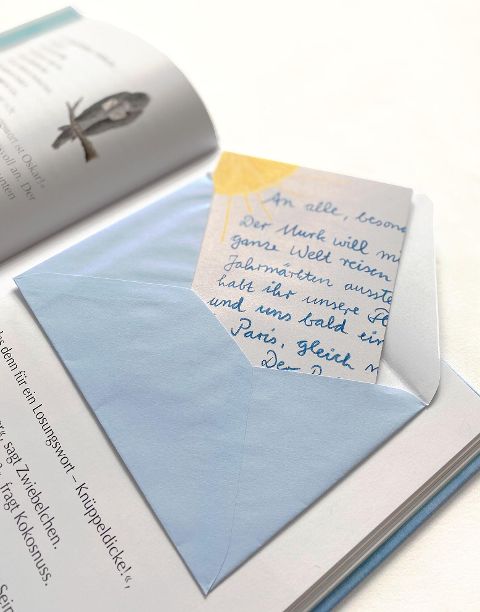 ist Oskar!«
voll an. Der
unten
An alle, beson
Der Murk will m
ganze Welt reisen
Jahrmärkten ausste
habt ihr unsere
und uns bald ein
Paris, gleich
Der
das denn für ein Losungswort – Knüppeldicke!«,
sagt Zwiebelchen.
fragt Kokosnuss.
Sein